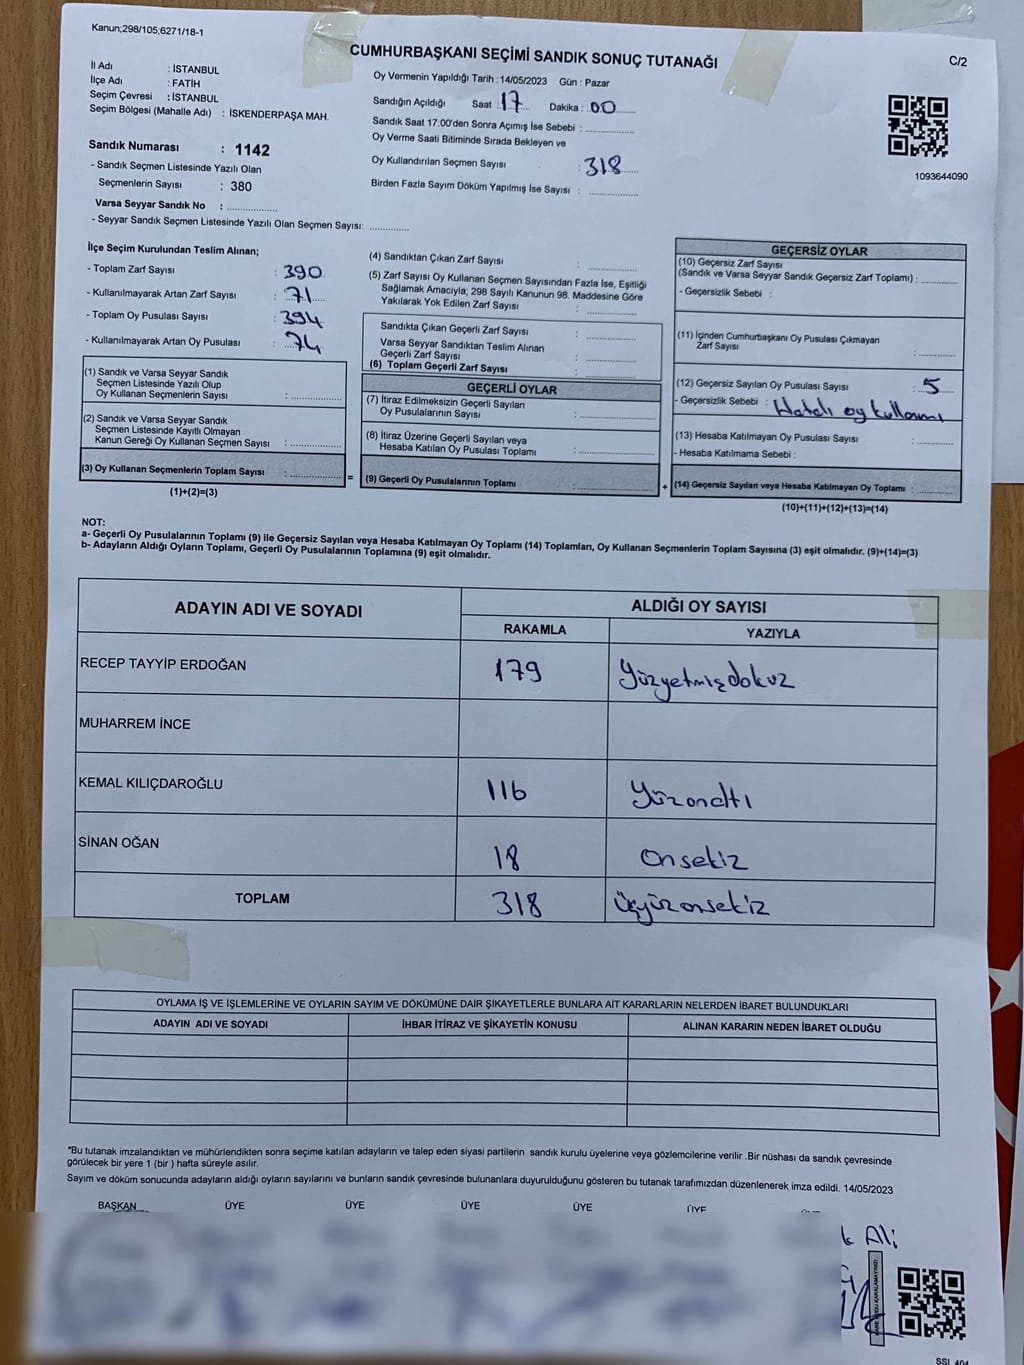 Kanun;298/105;6271/18-1
CUMHURBAŞKANI SEÇİMİ SANDIK SONUÇ TUTANAĞI
C/2
İl Adı : İSTANBUL
İlçe Adı : FATİH
Seçim Çevresi : İSTANBUL
Seçim Bölgesi (Mahalle Adı) : İSKENDERPAŞA MAH.
Oy Vermenin Yapıldığı Tarih :14/05/2023 Gün : Pazar
Sandığın Açıldığı Saat 17 Dakika : 00
Sandık Saat 17:00'den Sonra Açımış İse Sebebi :
Oy Verme Saati Bitiminde Sırada Bekleyen ve
Oy Kullandırılan Seçmen Sayısı : 318
Birden Fazla Sayım Döküm Yapılmış İse Sayısı :
1093644090
Sandık Numarası : 1142
- Sandık Seçmen Listesinde Yazılı Olan
Seçmenlerin Sayısı : 380
Varsa Seyyar Sandık No :
- Seyyar Sandık Seçmen Listesinde Yazılı Olan Seçmen Sayısı:
İlçe Seçim Kurulundan Teslim Alınan;
- Toplam Zarf Sayısı : 390
- Kullanılmayarak Artan Zarf Sayısı : 71
- Toplam Oy Pusulası Sayısı : 394
- Kullanılmayarak Artan Oy Pusulası : 74
(1) Sandık ve Varsa Seyyar Sandık
Seçmen Listesinde Yazılı Olup
Oy Kullanan Seçmenlerin Sayısı :
(2) Sandık ve Varsa Seyyar Sandık
Seçmen Listesinde Kayıtlı Olmayan
Kanun Gereği Oy Kullanan Seçmen Sayısı :
(3) Oy Kullanan Seçmenlerin Toplam Sayısı :
(1)+(2)=(3)
=
(4) Sandıktan Çıkan Zarf Sayısı :
(5) Zarf Sayısı Oy Kullanan Seçmen Sayısından Fazla İse, Eşitliği
Sağlamak Amacıyla, 298 Sayılı Kanunun 98. Maddesine Göre
Yakılarak Yok Edilen Zarf Sayısı :
Sandıkta Çıkan Geçerli Zarf Sayısı :
Varsa Seyyar Sandıktan Teslim Alınan
Geçerli Zarf Sayısı :
(6) Toplam Geçerli Zarf Sayısı :
GEÇERLİ OYLAR
(7) İtiraz Edilmeksizin Geçerli Sayılan
Oy Pusulalarının Sayısı :
(8) İtiraz Üzerine Geçerli Sayılan veya
Hesaba Katılan Oy Pusulası Toplamı :
(9) Geçerli Oy Pusulalarının Toplamı :
+
GEÇERSİZ OYLAR
(10) Geçersiz Zarf Sayısı
(Sandık ve Varsa Seyyar Sandık Geçersiz Zarf Toplamı) :
- Geçersizlik Sebebi :
(11) İçinden Cumhurbaşkanı Oy Pusulası Çıkmayan
Zarf Sayısı :
(12) Geçersiz Sayılan Oy Pusulası Sayısı : 5
- Geçersizlik Sebebi : Hatalı oy kullanımı
(13) Hesaba Katılmayan Oy Pusulası Sayısı :
- Hesaba Katılmama Sebebi :
(14) Geçersiz Sayılan veya Hesaba Katılmayan Oy Toplamı :
(10)+(11)+(12)+(13)=(14)
NOT:
a- Geçerli Oy Pusulalarının Toplamı (9) ile Geçersiz Sayılan veya Hesaba Katılmayan Oy Toplamı (14) Toplamları, Oy Kullanan Seçmenlerin Toplam Sayısına (3) eşit olmalıdır. (9)+(14)=(3)
b- Adayların Aldığı Oyların Toplamı, Geçerli Oy Pusulalarının Toplamına (9) eşit olmalıdır.
ADAYIN ADI VE SOYADI
ALDIĞI OY SAYISI
RAKAMLA YAZIYLA
RECEP TAYYİP ERDOĞAN 179 Yüzyetmişdokuz
MUHARREM İNCE
KEMAL KILIÇDAROĞLU 116 Yüzonaltı
SİNAN OĞAN 18 Onsekiz
TOPLAM 318 üçyüzonsekiz
OYLAMA İŞ VE İŞLEMLERİNE VE OYLARIN SAYIM VE DÖKÜMÜNE DAİR ŞİKAYETLERLE BUNLARA AİT KARARLARIN NELERDEN İBARET BULUNDUKLARI
ADAYIN ADI VE SOYADI İHBAR İTİRAZ VE ŞİKAYETİN KONUSU ALINAN KARARIN NEDEN İBARET OLDUĞU
"Bu tutanak imzalandıktan ve mühürlendikten sonra seçime katılan adayların ve talep eden siyasi partilerin sandık kurulu üyelerine veya gözlemcilerine verilir .Bir nüshası da sandık çevresinde
görülecek bir yere 1 (bir ) hafta süreyle asılır.
Sayım ve döküm sonucunda adayların aldığı oyların sayılarını ve bunların sandık çevresinde bulunanlara duyurulduğunu gösteren bu tutanak tarafımızdan düzenlenerek imza edildi. 14/05/2023
BAŞKAN ÜYE ÜYE ÜYE ÜYE ÜYE
Ali